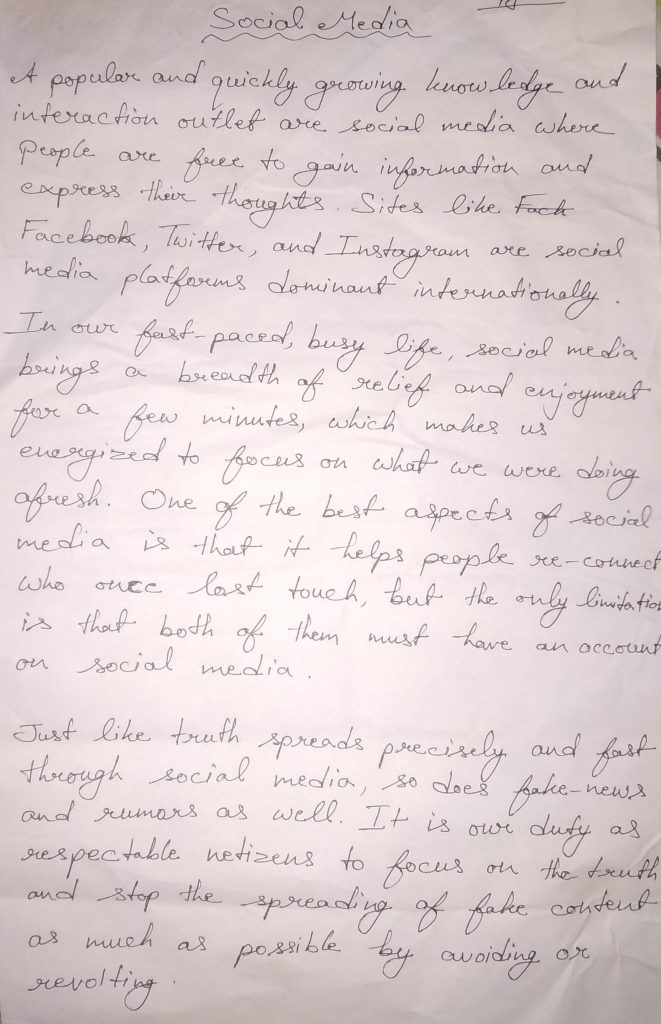 Social Media
A popular and quickly growing knowledge and
interaction outlet are social media where
People are free to gain information and
express their thoughts. Sites like Fach
Facebook, Twitter, and Instagram are social
media platforms dominant internationally.
In our fast-paced, busy life, social media
brings a breadth of relief and enjoyment
for a few minutes, which makes us
energized to focus on what we were doing
afresh. One of the best aspects of social
media is that it helps people re-connect
who once lost touch, but the only limitation
is that both of them must have an account
on social media.
Just like truth spreads precisely and fast
through social media, so does fake-news
and rumors as well. It is our duty as
respectable netizens to focus on the truth
and stop the spreading of fake content
as much as possible by avoiding or
revolting.